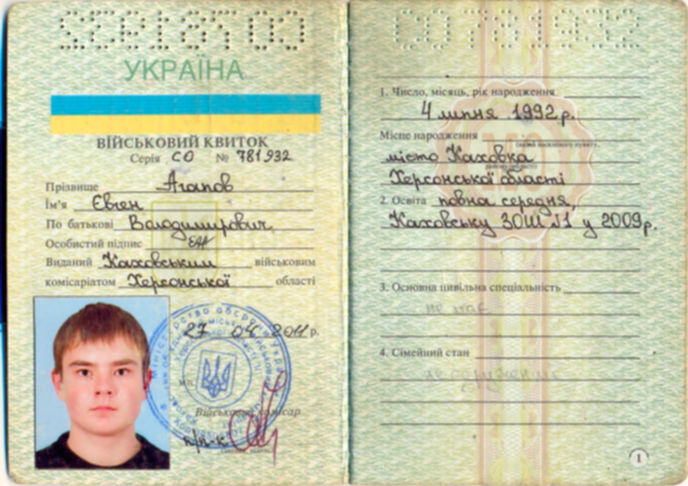 СО781932
УКРАЇНА
ВІЙСЬКОВИЙ КВИТОК
Серія СО № 781932
Прізвище Агапов
Ім'я Євген
По батькові Володимирович
Особистий підпис ЕАА
Виданий Каховським військовим
комісаріатом Херсонської області
27 04 2011 р.
Міністерство оборони України
М.П.
Військовий комісар
п/п-к
СО781932
1. Число, місяць, рік народження
4 липня 1992 р.
Місце народження
(назва населеного пункту,
місто Каховка
Херсонської області
2. Освіта повна середня,
Каховську ЗОШ №1 у 2009р.
3. Основна цивільна спеціальність
не має
4. Сімейний стан
не одружений
1